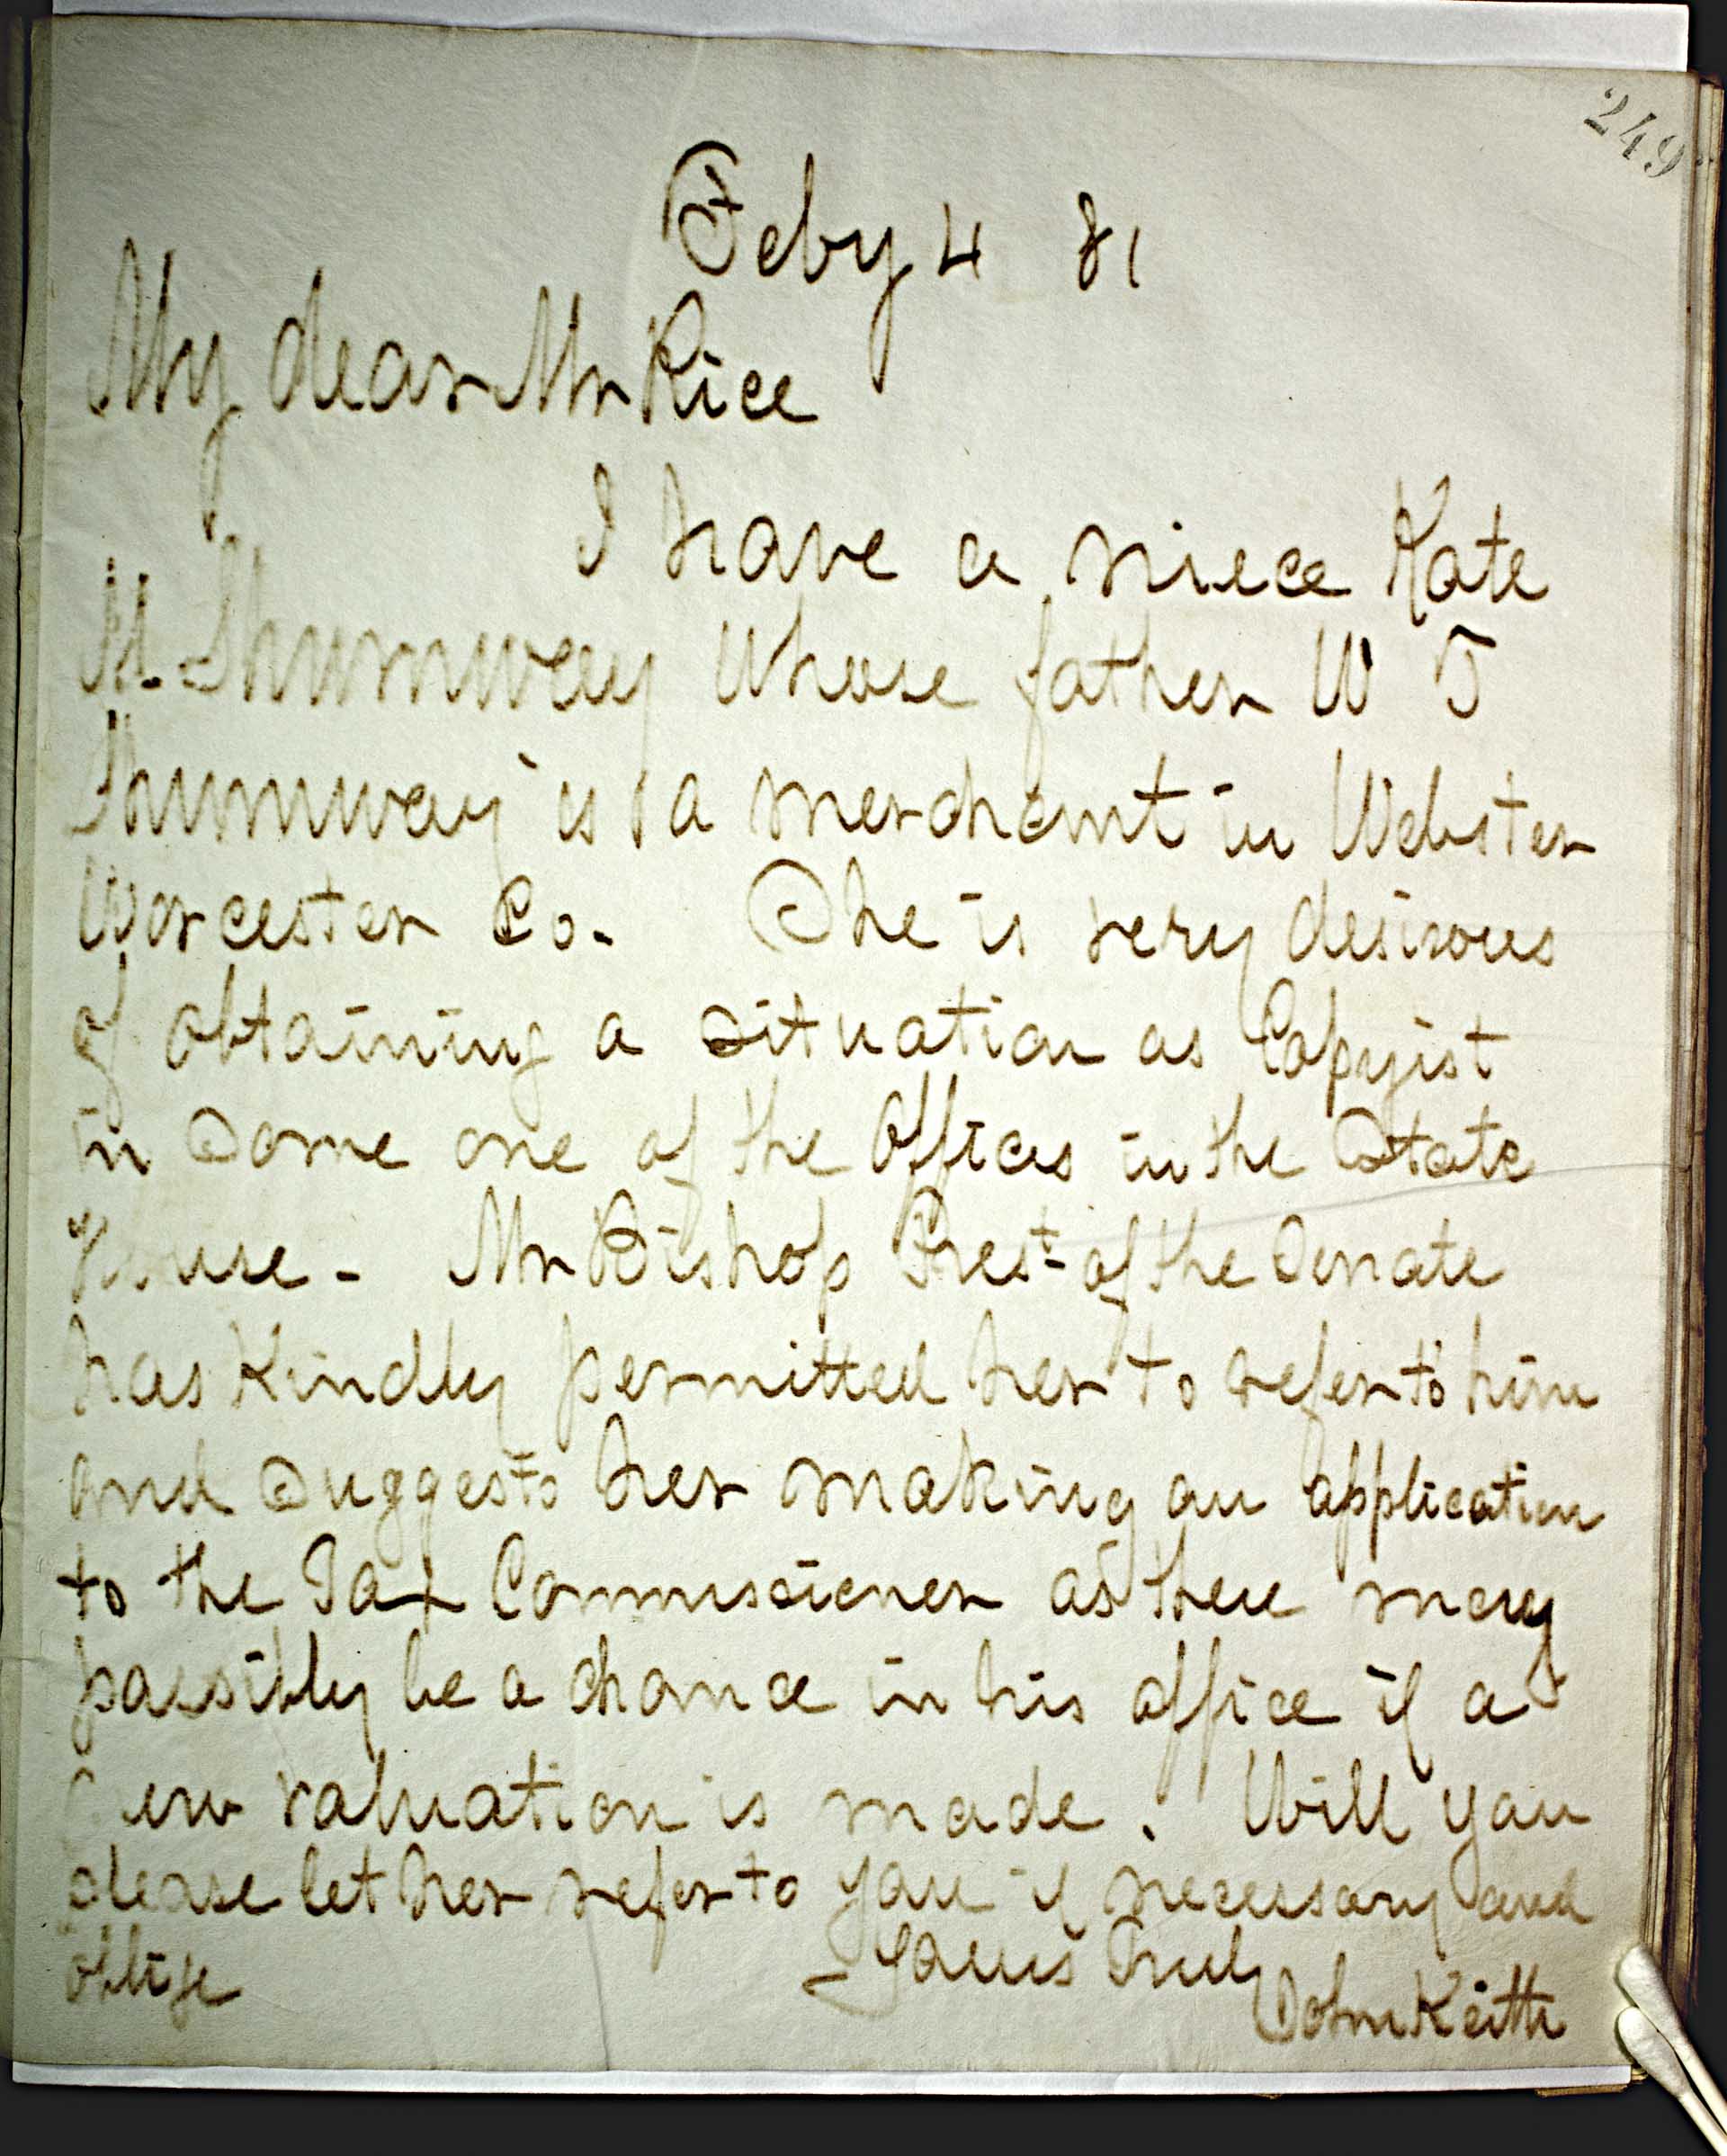 249
Feby 4 81
My dear Mr Rice
I have a niece Kate
M. Shumway whose father W T
Shumway is a merchant in Webster
Worcester Co. She is very desirous
of obtaining a situation as Copyist
in Some one of the Offices in the State
House - Mr Bishop Prest of the Senate
has Kindly permitted her to refer to him
and Suggests her making an application
to the Tax Commissioner as there may
possibly be a chance in his office if a
new valuation is made. Will you
please let her refer to you if necessary and
oblige Yours Truly
John Keith